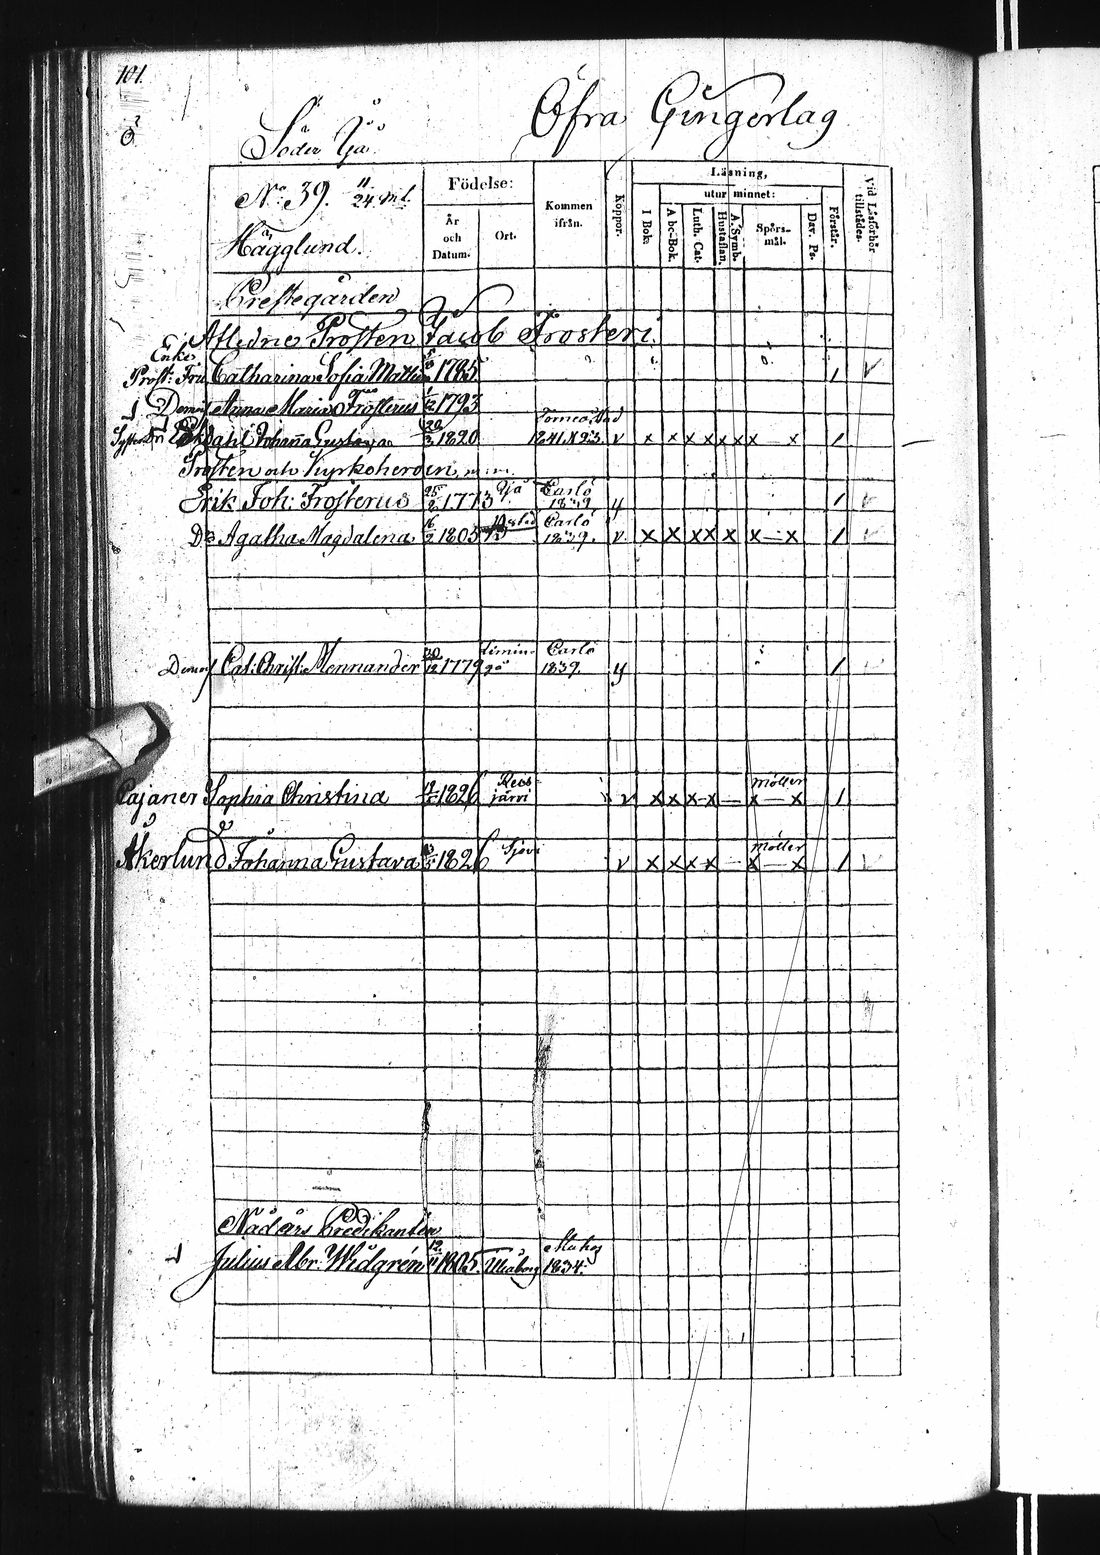 101.
Öfra Gingerlag
Söder Ijå
No 39. 11/24 Mtl.
Hägglund.
Födelse:
År och Datum.
Ort.
Kommen ifrån.
Koppor.
Läsning,
utur minnet:
I Bok.
Abc-Bok.
Luth. Cat.
Hustaflan.
A. Symb.
Spörs-mål.
Dav. Ps.
Förstår.
Vid Läsförhör tillstädes.
Prestegården
Afledne Prosten Jacob Frosteri
Enka
Prost: Fru Catharina Sofia 1785 1
Demois Anna Maria Frosterus 1793
Ekdahl Johanna Gustava 20/3 1820 Torneå Stad 1841 N 23. v x x x x x x x — x 1
Prosten och Kyrkoherden
Erik Joh: Frosterus 25/2 1773 Ijå Carlö 1839 y 1
Dr Agatha Magdalena 16/2 1805 Carlö 1839. v x x x x x x — x 1
Demois Cat: Christ: Mennander 20/12 1779 Limingo Carlö 1839. y 1
Cajaner Sophia Christina 1826 Reisjärvi v x x x - x — x — x möller 1
Åkerlund Johanna Gustava 1826 v x x x x — x — x möller 1
Nådårs Predikanten
Julius Abr: Widgrén 1805. Uleåborg 1834.